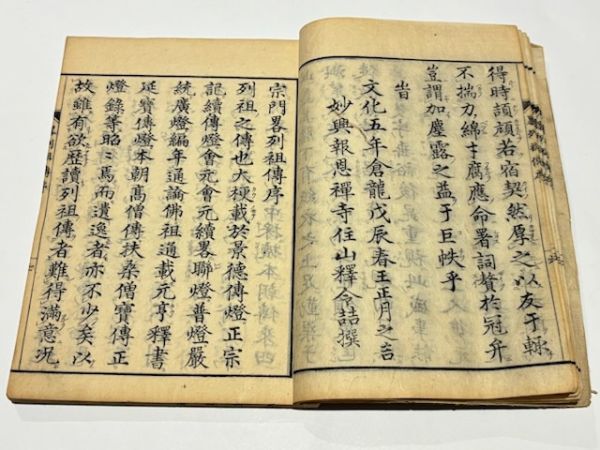 得時頡頏若宿契然厚之以友于輙
不揣刀綿才腐應命署詞贅於冠弁
豈謂加塵露之益于巨帙乎
旹
文化五年倉龍戊辰春王正月之吉
妙興報恩禪寺住山釋令喆撰
宗門畧列祖傳序
列祖之傳也大梗載於景德傳燈正宗
記續傳燈會元會元續畧聯燈普燈嚴
統廣燈編年通論佛祖通載元亨釋書
延寶傳燈本朝高僧傳扶桑僧寶傳正
燈錄等昭〻焉而遺逸者亦不少矣以
故雖有欲歷讀列祖傳者難得滿意况